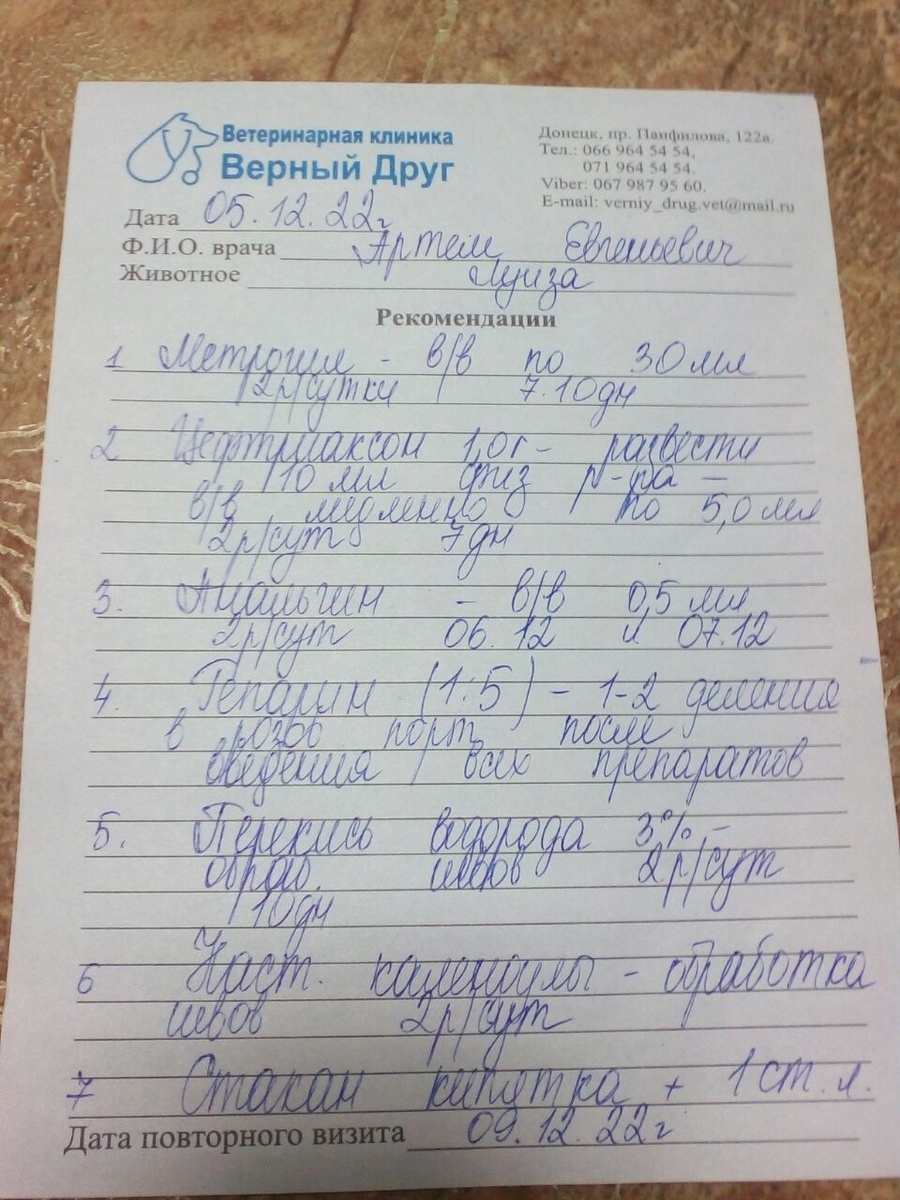 Ветеринарная клиника
Верный Друг
Донецк, пр. Панфилова, 122а.
Тел.: 066 964 54 54,
071 964 54 54.
Viber: 067 987 95 60.
E-mail: verniy_drug.vet@mail.ru
Дата 05.12.22г
Ф.И.О. врача Артем Евгеньевич
Животное Луиза
Рекомендации
1 Метрогил - в/в по 30 мл
2р/сутки 7-10дн
2 Цефтриаксон 1,0г - развести
10 мл физ р-ра -
в/в медленно по 5,0 мл
2р/сут 7дн
3. Анальгин - в/в 0,5 мл
2р/сут 06.12 и 07.12
4. Гепарин (1:5) - 1-2 деления
в розов порт после
введения всех препаратов
5. Перекись водорода 3% -
обраб. швов 2р/сут
10дн
6 Наст. календулы - обработка
швов 2р/сут
7 Стакан кипятка + 1 ст. л.
Дата повторного визита 09.12.22г